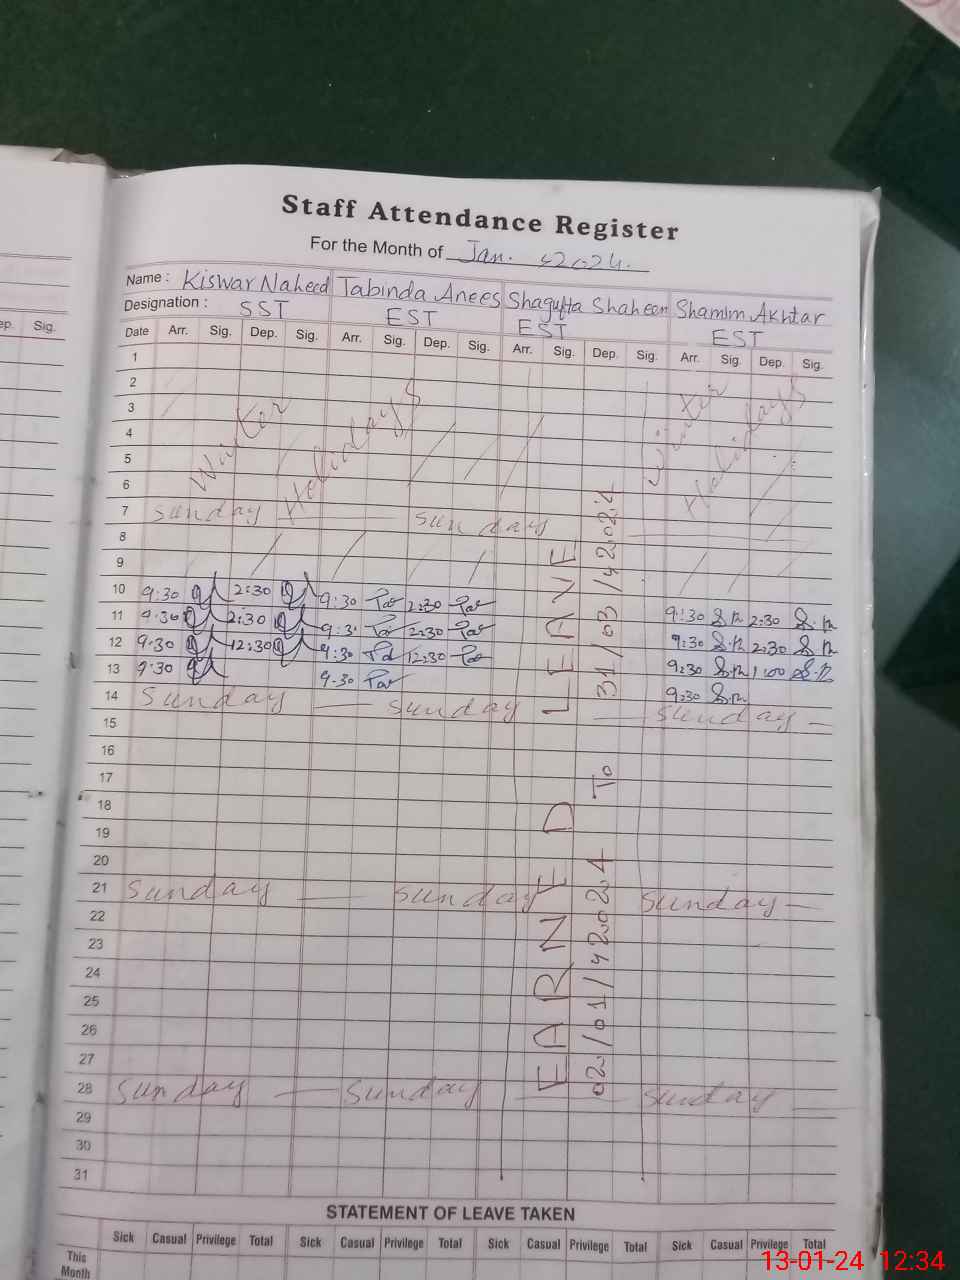 Staff Attendance Register
For the Month of Jan. 2024.
Name : Kiswar Naheed Tabinda Anees Shagufta Shaheen Shamim Akhtar
Designation : SST EST EST EST
ep. Sig.
Date Arr. Sig. Dep. Sig. Arr. Sig. Dep. Sig. Arr. Sig. Dep. Sig. Arr. Sig. Dep. Sig.
1
2
3
4
5
6
Winter Holidays
Winter Holidays
7 Sunday Sunday
8
9
10 9:30 2:30 9:30 2:30 9:30 S.A 2:30 S.A
11 9:30 2:30 9:3 2:30 9:30 S.A 2:30 S.A
12 9:30 12:30 9:30 12:30 9:30 S.A 1:00 S.A
13 9:30 9:30 9:30 S.A
14 Sunday Sunday Sunday
15
16
17
18
19
20
21 Sunday Sunday Sunday
22
23
24
25
26
27
28 Sunday Sunday Sunday
29
30
31
EARNED LEAVE
02/01/2024 To 31/03/2024
STATEMENT OF LEAVE TAKEN
Sick Casual Privilege Total Sick Casual Privilege Total Sick Casual Privilege Total Sick Casual Privilege Total
This
Month
13-01-24 12:34